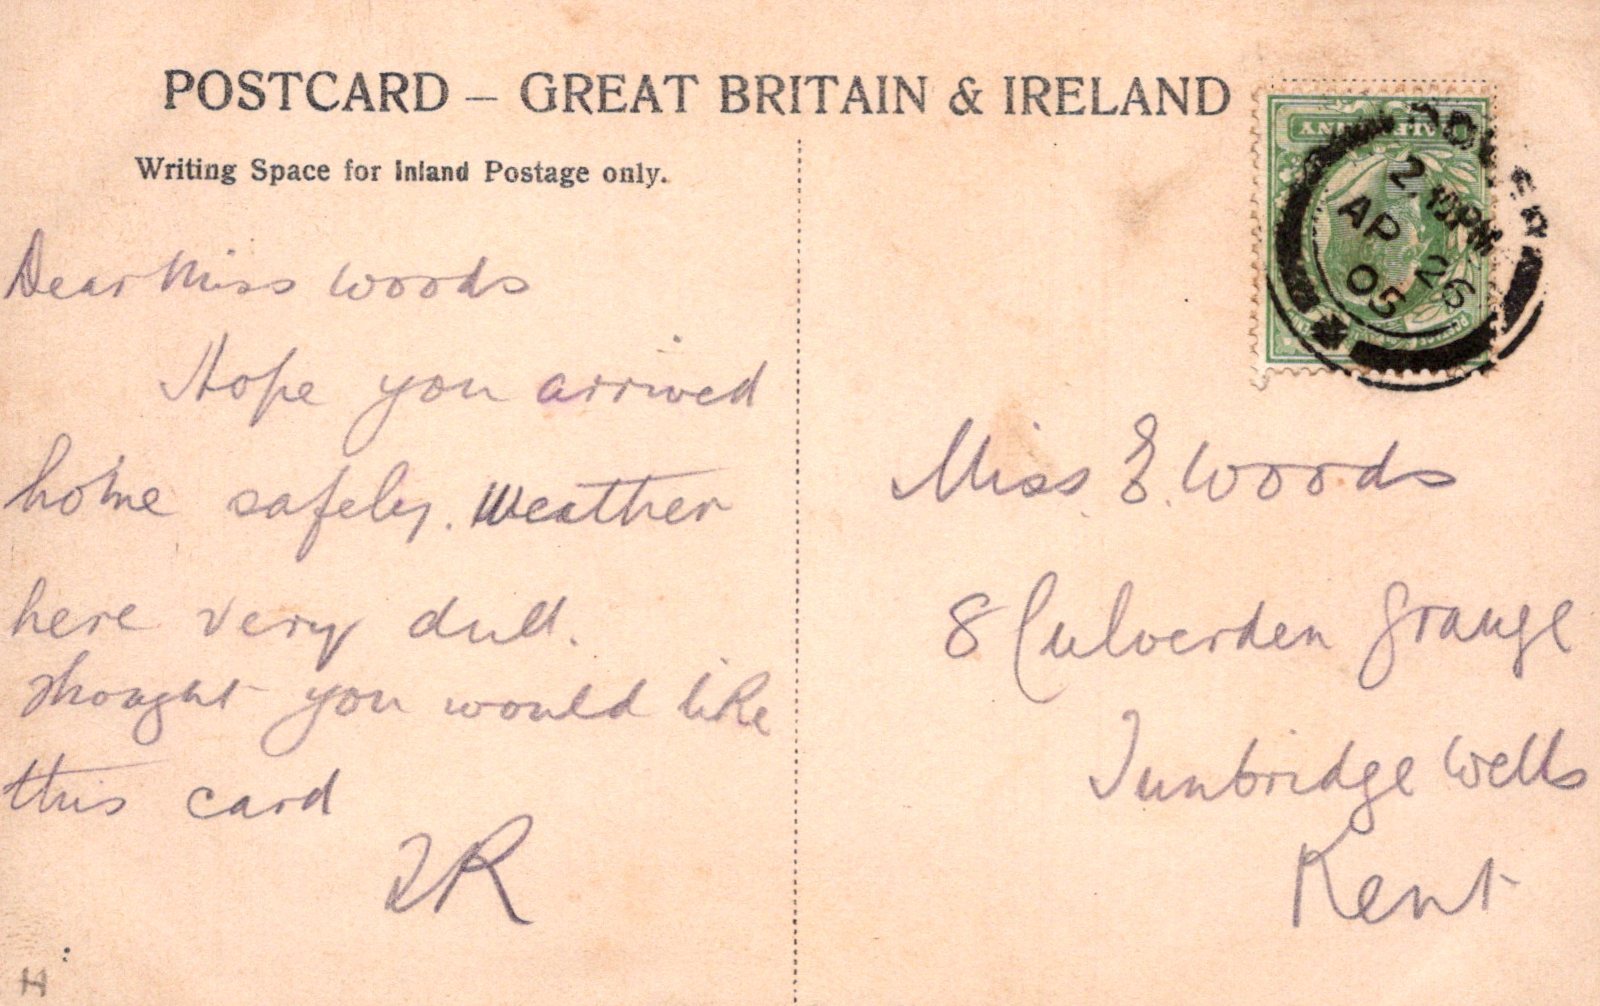 POSTCARD – GREAT BRITAIN & IRELAND
Writing Space for Inland Postage only.
Dear Miss Woods
Hope you arrived
home safely. Weather
here very dull.
Thought you would like
this card
Miss. E. Woods
8 Culverden Grange
Tunbridge Wells
Kent
DOVER
2. 10PM
AP 26
05